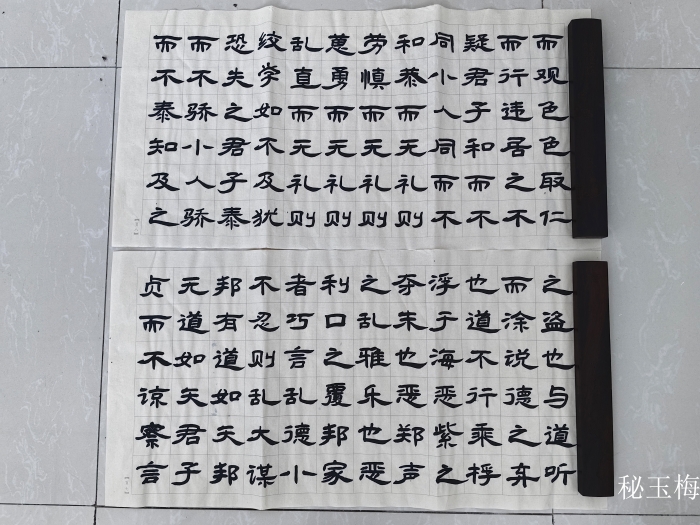 而观色色取仁
而行违居之不
疑君子和而不
同小人同而不
和恭而无礼则
劳慎而无礼则
葸勇而无礼则
乱直而无礼则
绞学如不及犹
恐失之君子泰
而不骄小人骄
而不泰知及之
之盗也与道听
而涂说德之弃
也道不行乘桴
浮于海恶紫之
夺朱也恶郑声
之乱雅乐也恶
利口之覆邦家
者巧言乱德小
不忍则乱大谋
邦有道如矢邦
无道如矢君子
贞而不谅察言
秘玉梅